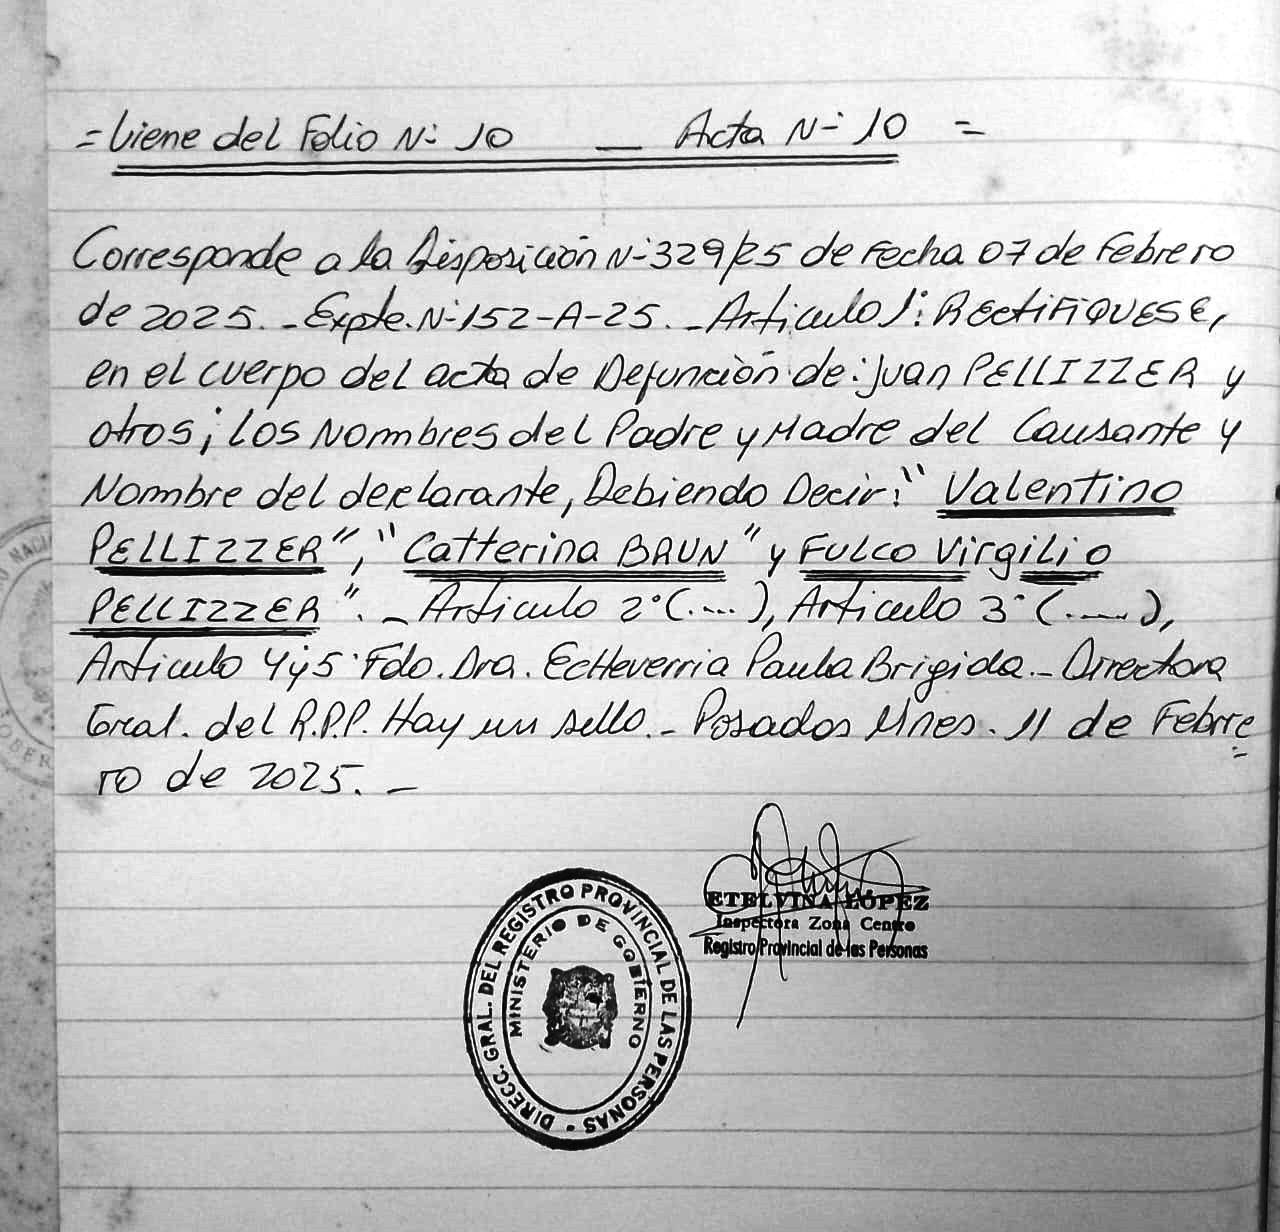 = Viene del Folio N° 10 — Acta N° 10 =
Corresponde a la Disposición N° 329/25 de Fecha 07 de Febrero
de 2025._ Expte. N° 152-A-25._ Articulo 1°: RECTIFIQUESE,
en el cuerpo del acta de Defunción de: Juan PELLIZZER y
otros; los Nombres del Padre y Madre del Causante y
Nombre del declarante, Debiendo Decir: "Valentino
PELLIZZER", "Catterina BRUN" y FULCO Virgilio
PELLIZZER"._ Articulo 2° (.....), Articulo 3° (.....),
Articulo 4 y 5° Fdo. Dra. Echeverria Paula Brigida._ Directora
Gral. del R.P.P. Hay un sello._ Posadas Mnes. 11 de Febre
ro de 2025._
ETELVINA LÓPEZ
Inspectora Zona Centro
Registro Provincial de las Personas
DIRECC. GRAL. DEL REGISTRO PROVINCIAL DE LAS PERSONAS -
MINISTERIO DE GOBIERNO